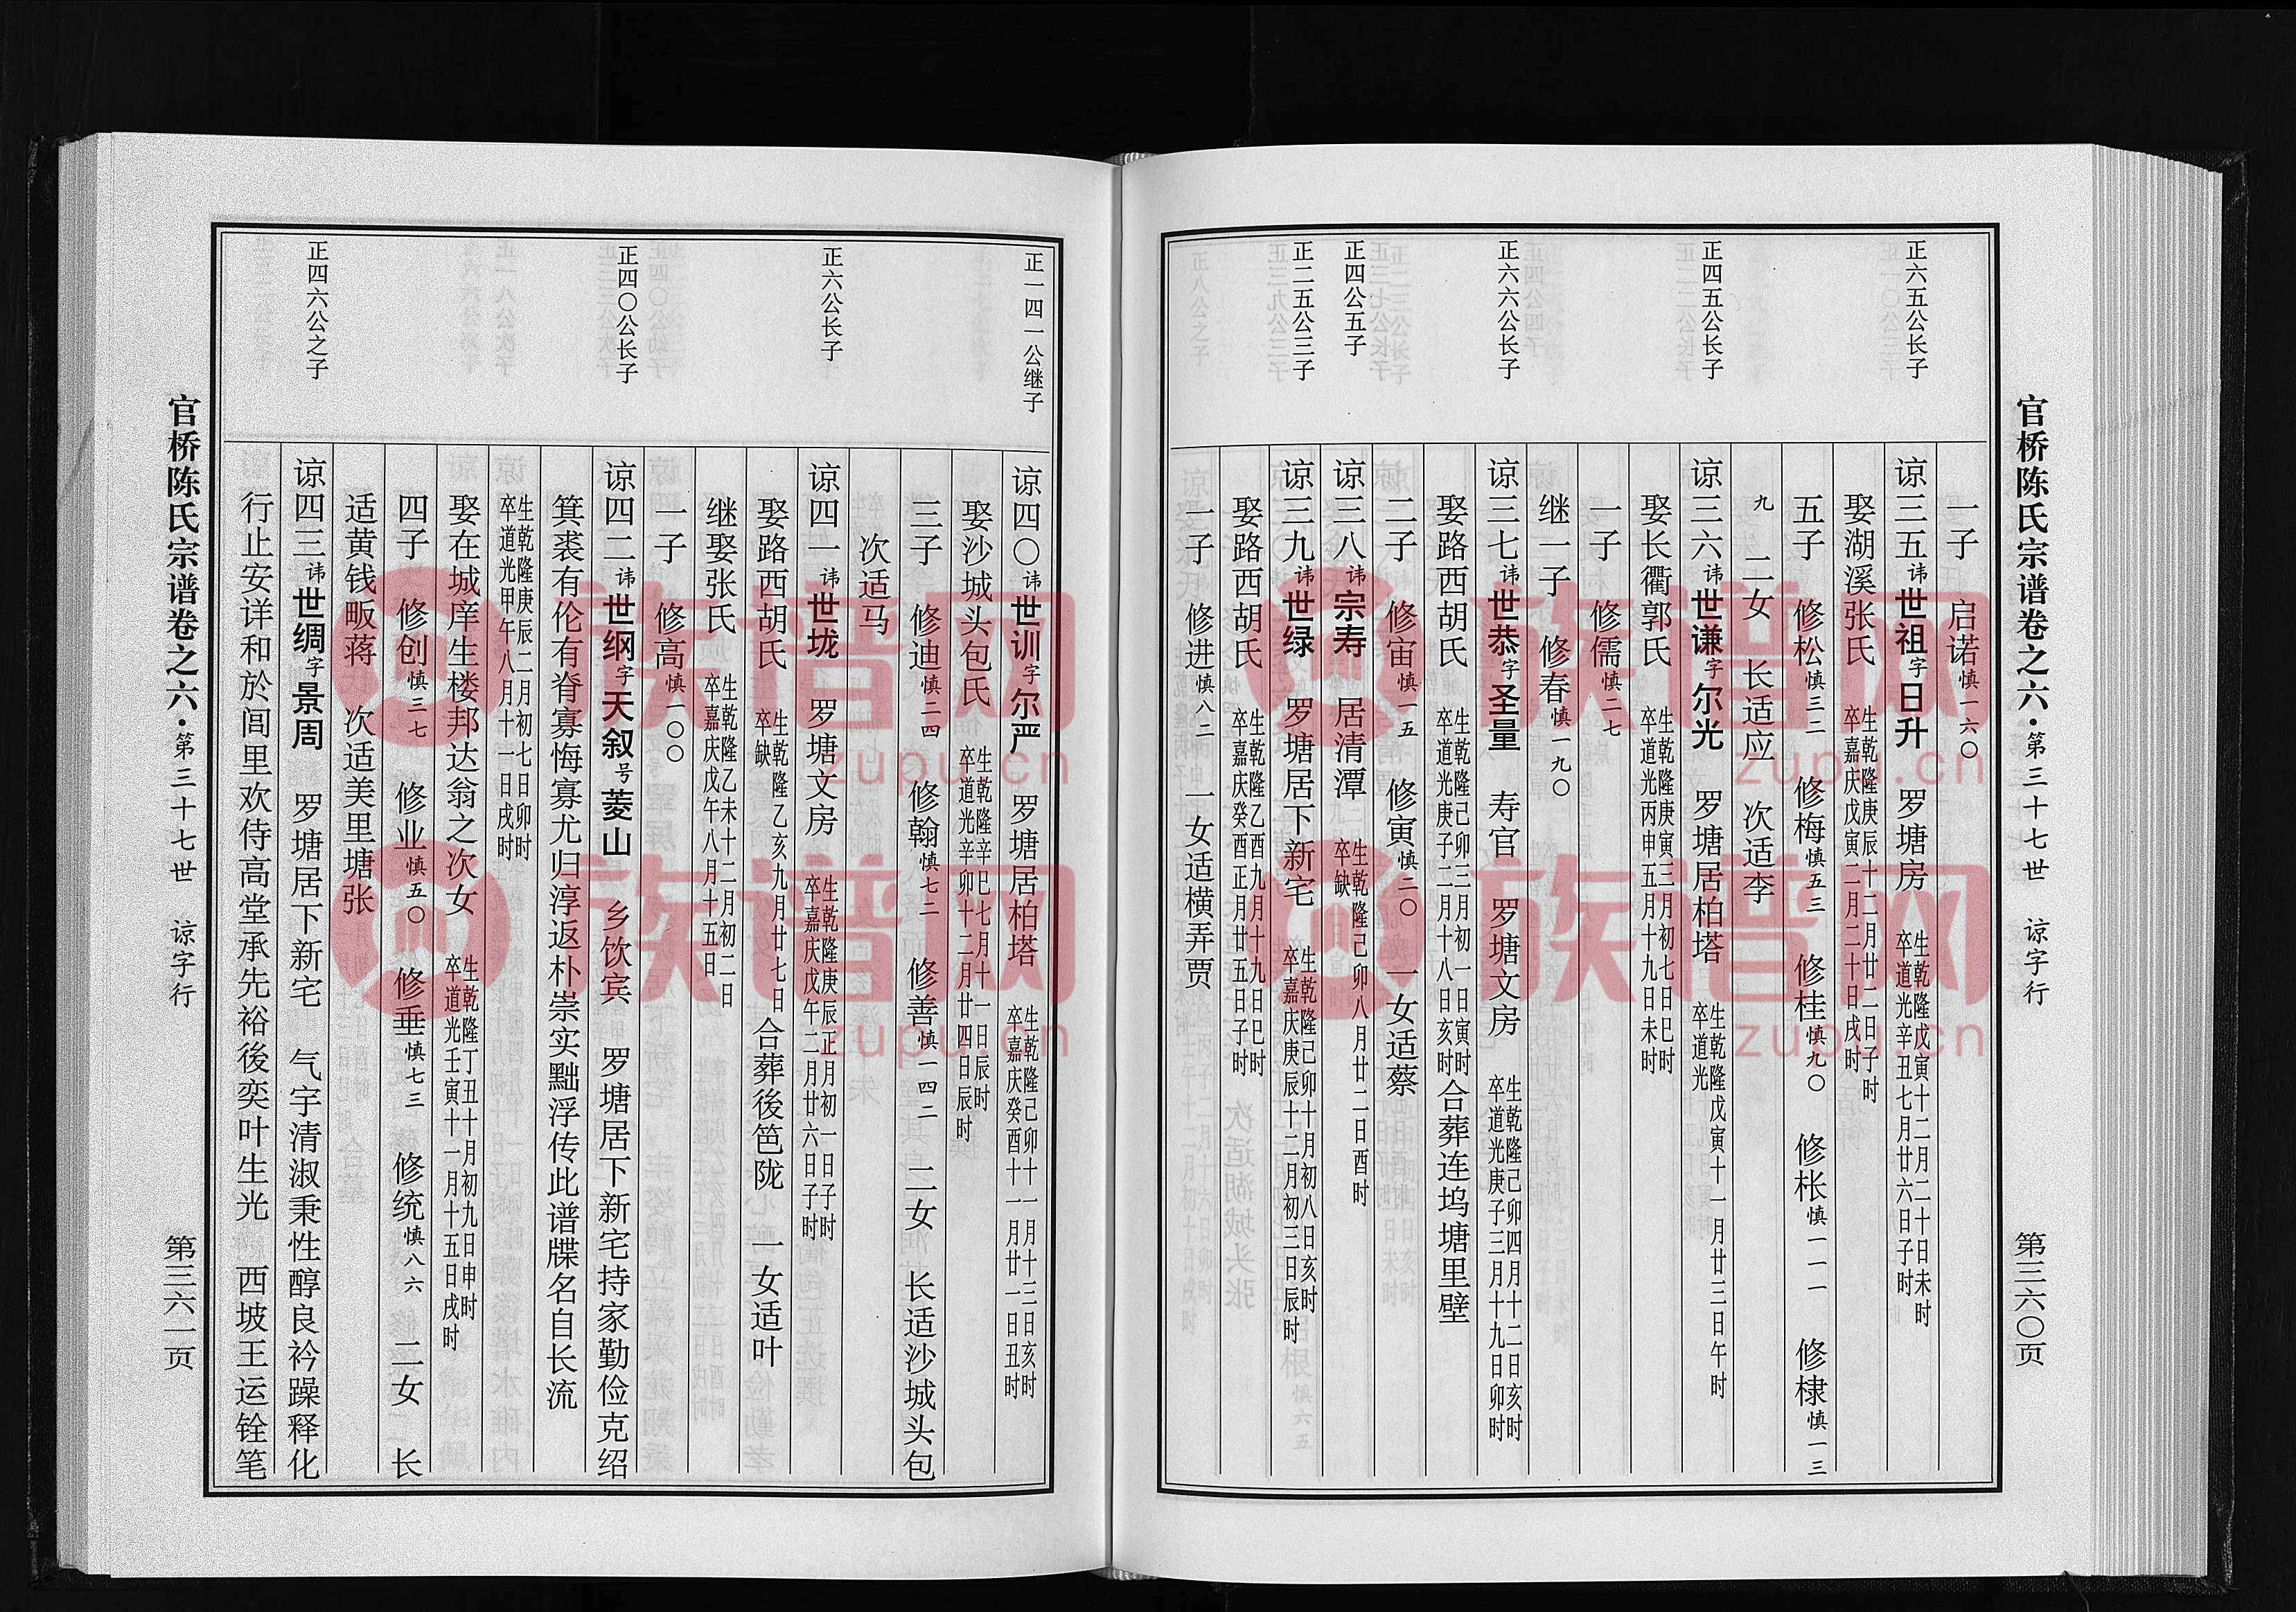 官桥陈氏宗谱卷之六·第三十七世 谅字行 第三六〇页
一子 启诺慎一六〇
正六五公长子
谅三五讳世祖字日升 罗塘房 生乾隆戊寅十二月二十日未时 卒道光辛丑七月廿六日子时
娶湖溪张氏 生乾隆庚辰十二月廿二日子时 卒嘉庆戊寅二月二十日戌时
五子 修松慎三二 修梅慎五三 修桂慎九〇 修枨慎一一一 修棣慎一三
九 二女 长适应 次适李
正四五公长子
谅三六讳世谦字尔光 罗塘居柏塔 生乾隆戊寅十一月廿三日午时 卒道光
娶长衢郭氏 生乾隆庚寅三月初七日巳时 卒道光丙申五月十九日未时
一子 修儒慎二七
继一子 修春慎一九〇
正六六公长子
谅三七讳世恭字圣量 寿官 罗塘文房 生乾隆己卯四月十二日亥时 卒道光庚子三月十九日卯时
娶路西胡氏 生乾隆己卯三月初一日寅时 卒道光庚子二月十八日亥时 合葬连坞塘里壁
二子 修宙慎一五 修寅慎二〇 一女适蔡
正四公五子
谅三八讳宗寿 居清潭 生乾隆己卯八月廿二日酉时 卒缺
正二五公三子
谅三九讳世绿 罗塘居下新宅 生乾隆己卯十月初八日亥时 卒嘉庆庚辰十二月初三日辰时
娶路西胡氏 生乾隆乙酉九月十九日巳时 卒嘉庆癸酉正月廿五日子时
一子 修进慎八二 一女适横弄贾
正一四一公继子
谅四〇讳世训字尔严 罗塘居柏塔 生乾隆己卯十一月十三日亥时 卒嘉庆癸酉十一月廿一日丑时
娶沙城头包氏 生乾隆辛巳七月十一日辰时 卒道光辛卯十二月廿四日辰时
三子 修迪慎二四 修翰慎七二 修善慎一四二 二女 长适沙城头包
次适马
正六公长子
谅四一讳世垅 罗塘文房 生乾隆庚辰正月初一日子时 卒嘉庆戊午二月廿六日子时
娶路西胡氏 生乾隆乙亥九月廿七日 卒缺 合葬後笆陇 一女适叶
继娶张氏 生乾隆乙未十二月初二日 卒嘉庆戊午八月十五日
一子 修高慎一〇〇
正四〇公长子
谅四二讳世纲字天叙号菱山 乡饮宾 罗塘居下新宅持家勤俭克绍
箕裘有伦有脊寡悔寡尤归淳返朴崇实黜浮传此谱牒名自长流
生乾隆庚辰二月初七日卯时 卒道光甲午八月十一日戌时
娶在城庠生楼邦达翁之次女 生乾隆丁丑十月初九日申时 卒道光壬寅十一月十五日戌时
四子 修创慎三七 修业慎五〇 修垂慎七三 修统慎八六 二女 长
适黄钱畈蒋 次适美里塘张
正四六公之子
谅四三讳世绸字景周 罗塘居下新宅 气宇清淑秉性醇良衿躁释化
行止安详和於闾里欢侍高堂承先裕後奕叶生光 西坡王运铨笔
官桥陈氏宗谱卷之六·第三十七世 谅字行 第三六一页
族谱网
zupu.cn
族谱网
zupu.cn
族谱网
zupu.cn
族谱网
zupu.cn